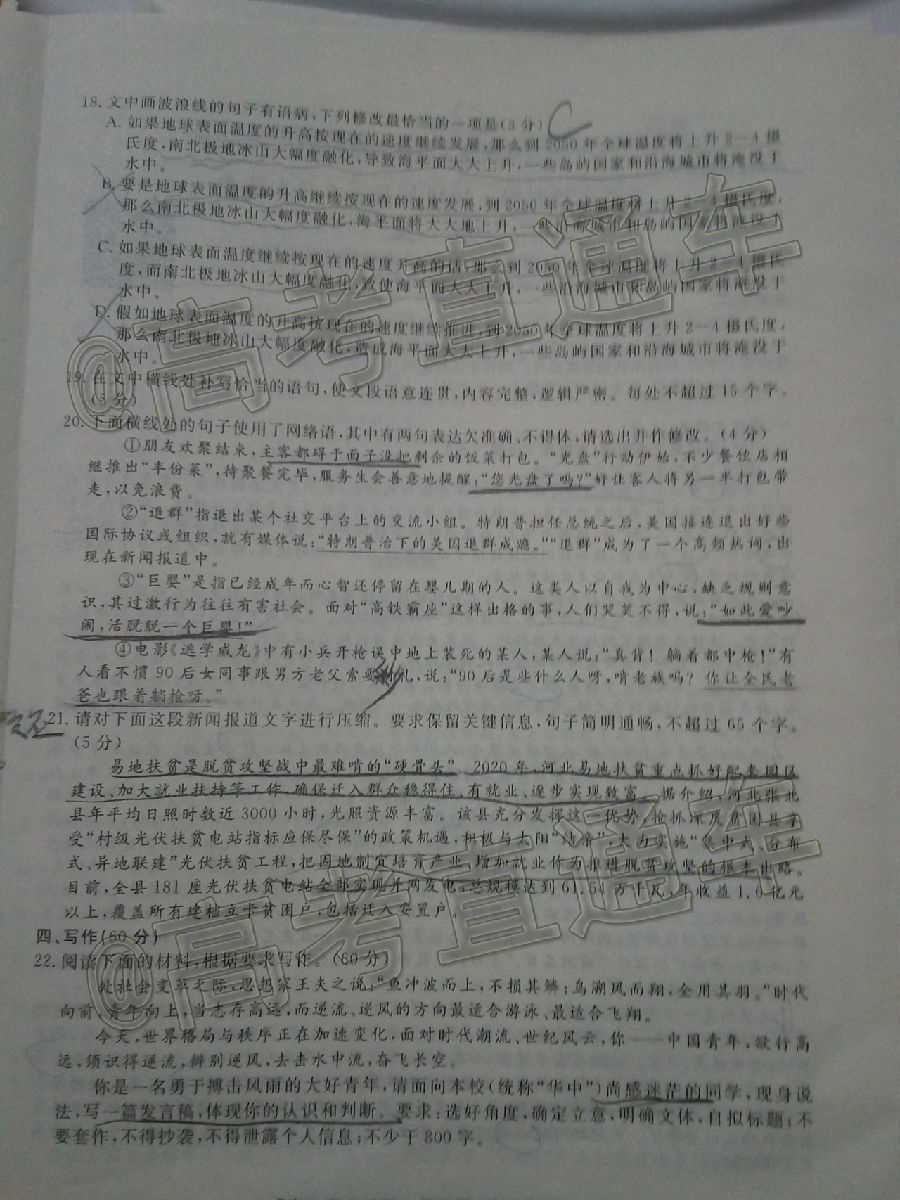 18. 文中画波浪线的句子有语病,下列修改最恰当的一项是(3分)
C
A. 如果地球表面温度的升高按现在的速度继续发展,那么到2050年全球温度将上升2—4摄
氏度,南北极地冰山大幅度融化,导致海平面大大上升,一些岛屿国家和沿海城市将淹没于
水中。
B. 要是地球表面温度的升高继续按现在的速度发展,到2050年全球温度将上升2—4摄氏度,
那么南北极地冰山大幅度融化,海平面将大大地上升,一些沿海城市和岛屿国家将淹没
水中。
C. 如果地球表面温度继续按现在的速度升高的话,那么到2050年全球温度将上升2—4摄氏
度,而南北极地冰山大幅度融化,致使海平面大大上升,一些沿海城市岛屿国家将淹没于
水中。
D. 假如地球表面温度的升高按现在的速度继续推进,到2050年全球温度将上升2—4摄氏度,
那么南北极地冰山大幅度融化,造成海平面大大上升,一些岛屿国家和沿海城市将淹没于
水中。
19. 在文中横线处补写恰当的语句,使文段语意连贯,内容完整,逻辑严密。每处不超过15个字。
(5分)
20. 下面横线处的句子使用了网络语,其中有两句表达欠准确、不得体,请选出并作修改。(4分)
①朋友欢聚结束,主客都碍于面子没把剩余的饭菜打包。“光盘”行动伊始,不少餐饮店相
继推出“半份菜”,待聚餐完毕,服务生会善意地提醒:“您光盘了吗?”好让客人将另一半打包带
走,以免浪费。
②“退群”指退出某个社交平台上的交流小组。特朗普担任总统之后,美国接连退出好些
国际协议或组织,就有媒体说:“特朗普治下的美国退群成瘾。”“退群”成为了一个高频热词,出
现在新闻报道中。
③“巨婴”是指已经成年而心智还停留在婴儿期的人。这类人以自我为中心,缺乏规则意
识,其过激行为往往有害社会。面对“高铁霸座”这样出格的事,人们哭笑不得,说:“如此爱吵
闹,活脱脱一个巨婴!”
④电影《逃学威龙》中有小兵开枪误中地上装死的某人,某人说:“真背!躺着都中枪!”有
人看不惯90后女同事跟男方老父常要礼,说:“90后是些什么人呀,啃老族吗?你让全民老
爸也跟着躺枪呀。”
21. 请对下面这段新闻报道文字进行压缩。要求保留关键信息,句子简明通畅,不超过65个字。
(5分)
易地扶贫是脱贫攻坚战中最难啃的“硬骨头”。2020年,河北易地扶贫重点抓好配套园区
建设、加大就业扶持等工作,确保迁入群众稳得住、有就业、逐步实现致富。据介绍,河北张北
县年平均日照时数近3000小时,光照资源丰富。该县充分发挥这一优势,抢抓深度贫困县享
受“村级光伏扶贫电站指标应保尽保”的政策机遇,积极与太阳“结缘”,大力实施“集中式、分布
式、异地联建”光伏扶贫工程,把因地制宜培育产业、增加就业作为推进脱贫攻坚的根本出路。
目前,全县181座光伏扶贫电站全部实现并网发电,总规模达到61.54万千瓦,年收益1.6亿元
以上,覆盖所有建档立卡贫困户,包括迁入安置户。
四、写作(60分)
22. 阅读下面的材料,根据要求写作。(60分)
处社会变革之际,思想家王夫之说:“鱼冲波而上,不损其鳞;鸟溯风而翔,全用其羽。”时代
向前,青年向上,当志存高远,而逆流、逆风的方向最适合游泳、最适合飞翔。
今天,世界格局与秩序正在加速变化,面对时代潮流、世纪风云,你——中国青年,欲行高
远,须识得逆流,辨别逆风,去击水中流,奋飞长空。
你是一名勇于搏击风雨的大好青年,请面向本校(统称“华中”)尚感迷茫的同学,现身说
法,写一篇发言稿,体现你的认识和判断。要求:选好角度,确定立意,明确文体,自拟标题;不
要套作,不得抄袭,不得泄露个人信息;不少于800字。
@高考直通车
@高考直通车